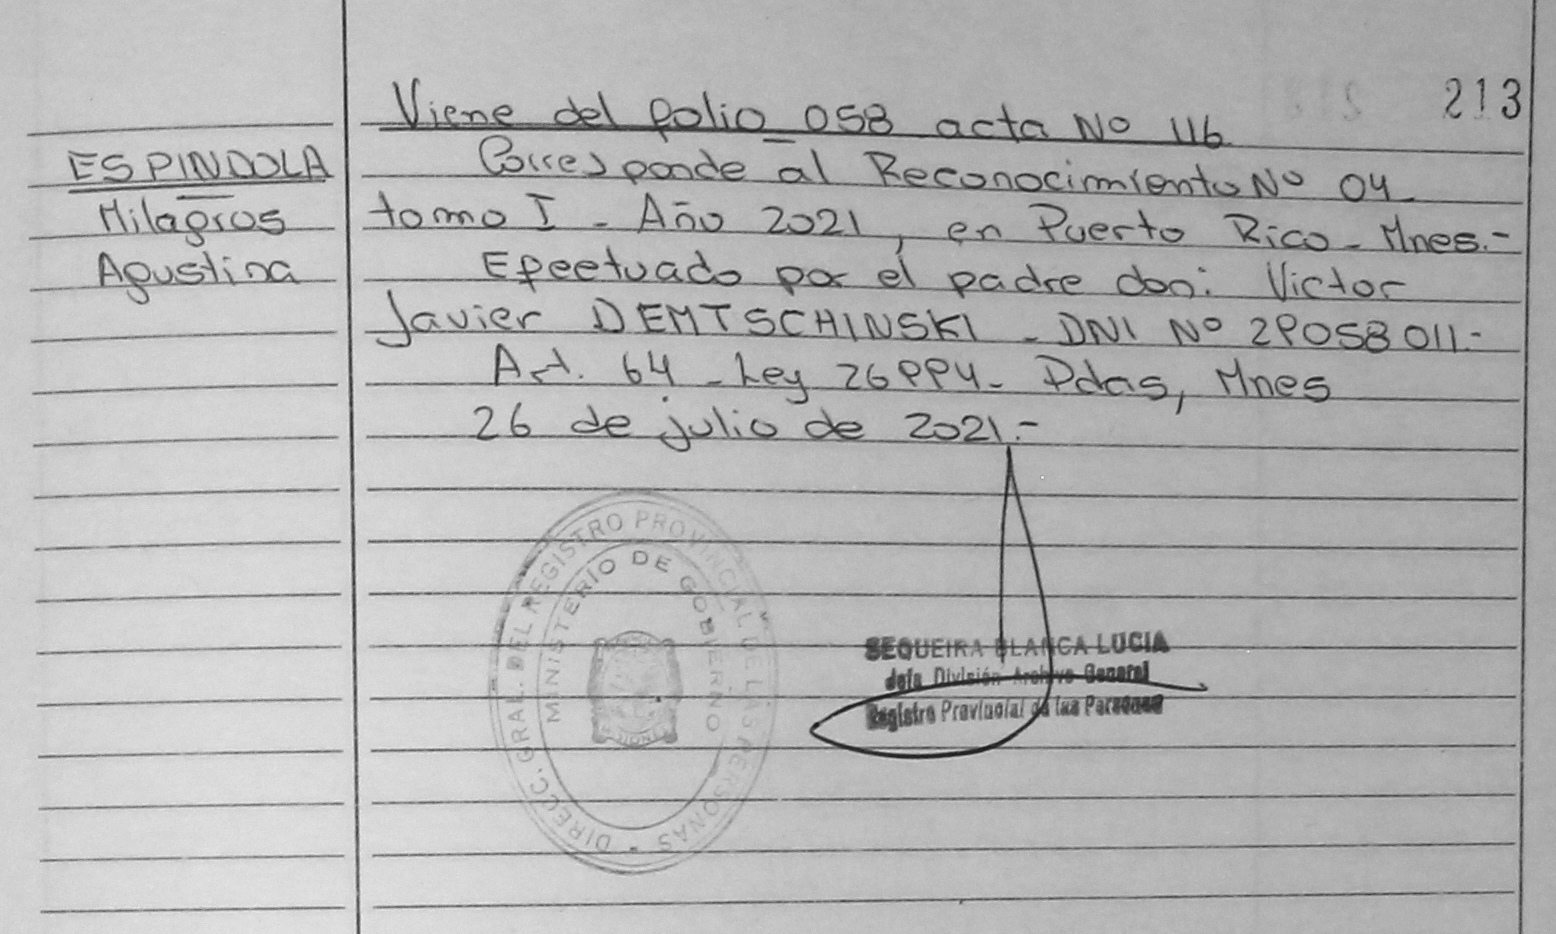 213
Viene del folio 058 acta Nº 116
ESPINDOLA
Milagros
Agustina
Corresponde al Reconocimiento Nº 04
tomo I - Año 2021, en Puerto Rico - Mnes.-
Efeetuado por el padre don: Victor
Javier DEMTSCHINSKI - DNI Nº 29058011.-
Art. 64 - Ley 26994 - Pdas, Mnes
26 de julio de 2021.-
DIRECC. GRAL. DEL REGISTRO PROVINCIAL DE LAS PERSONAS
MINISTERIO DE GOBIERNO
SEQUEIRA BLANCA LUCIA
Jefa División Archivo General
Registro Provincial de las Personas